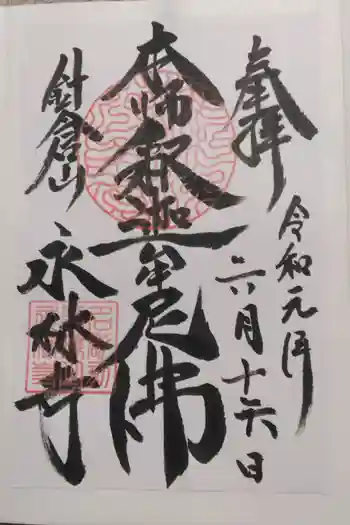 奉拝
令和元年
六月十六日
本師釈迦牟尼佛
針倉山
永林寺